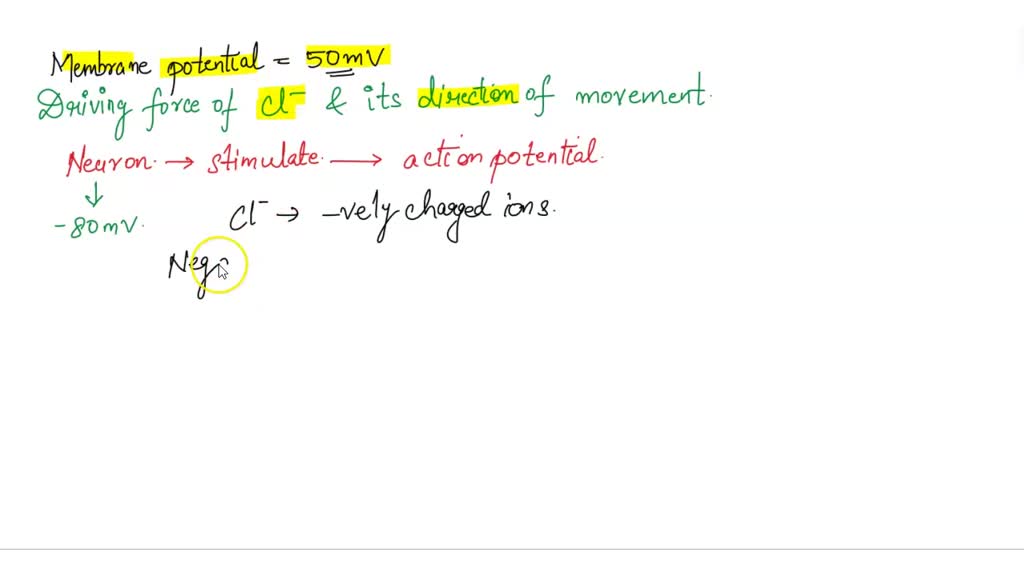 Membrane potential = 50mV
Driving force of Cl⁻ & its direction of movement.
Neuron. → stimulate. → action potential.
↓
-80mV.
Cl⁻ → -vely charged ions.
Nega